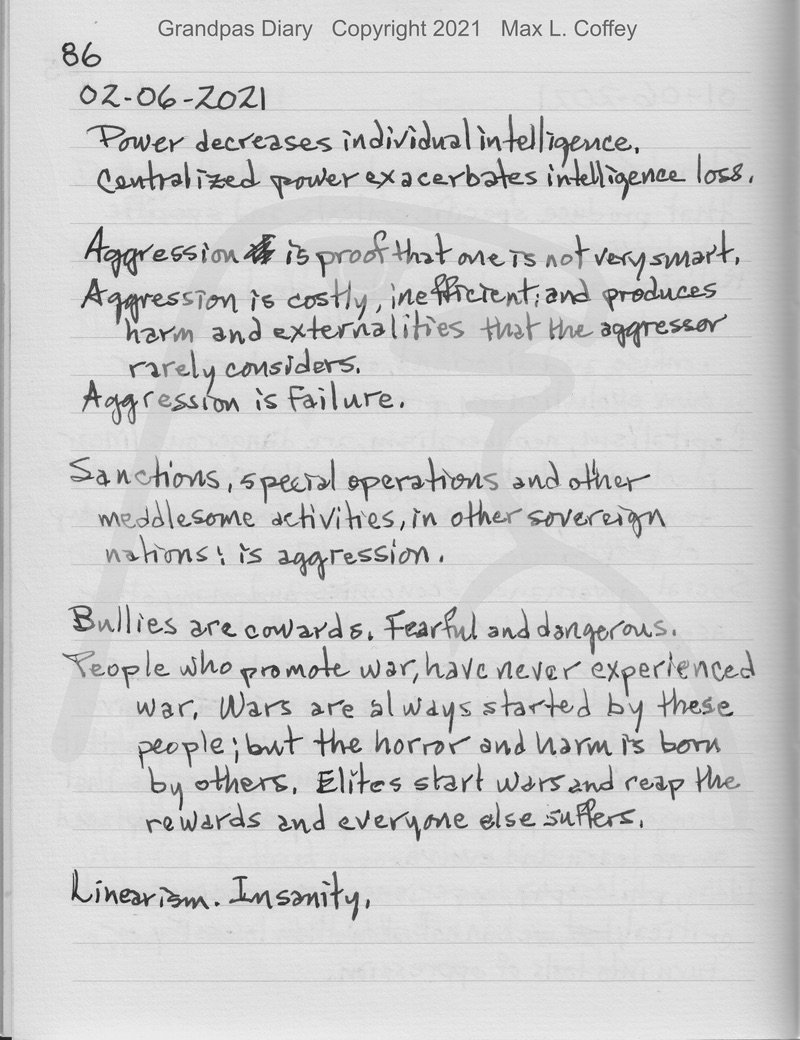 Grandpas Diary Copyright 2021 Max L. Coffey
86
02-06-2021
Power decreases individual intelligence.
Centralized power exacerbates intelligence loss.
Aggression is proof that one is not very smart.
Aggression is costly, inefficient; and produces
harm and externalities that the aggressor
rarely considers.
Aggression is Failure.
Sanctions, special operations and other
meddlesome activities, in other sovereign
nations; is aggression.
Bullies are cowards. Fearful and dangerous.
People who promote war, have never experienced
war. Wars are always started by these
people; but the horror and harm is born
by others. Elites start wars and reap the
rewards and everyone else suffers.
Linearism. Insanity.